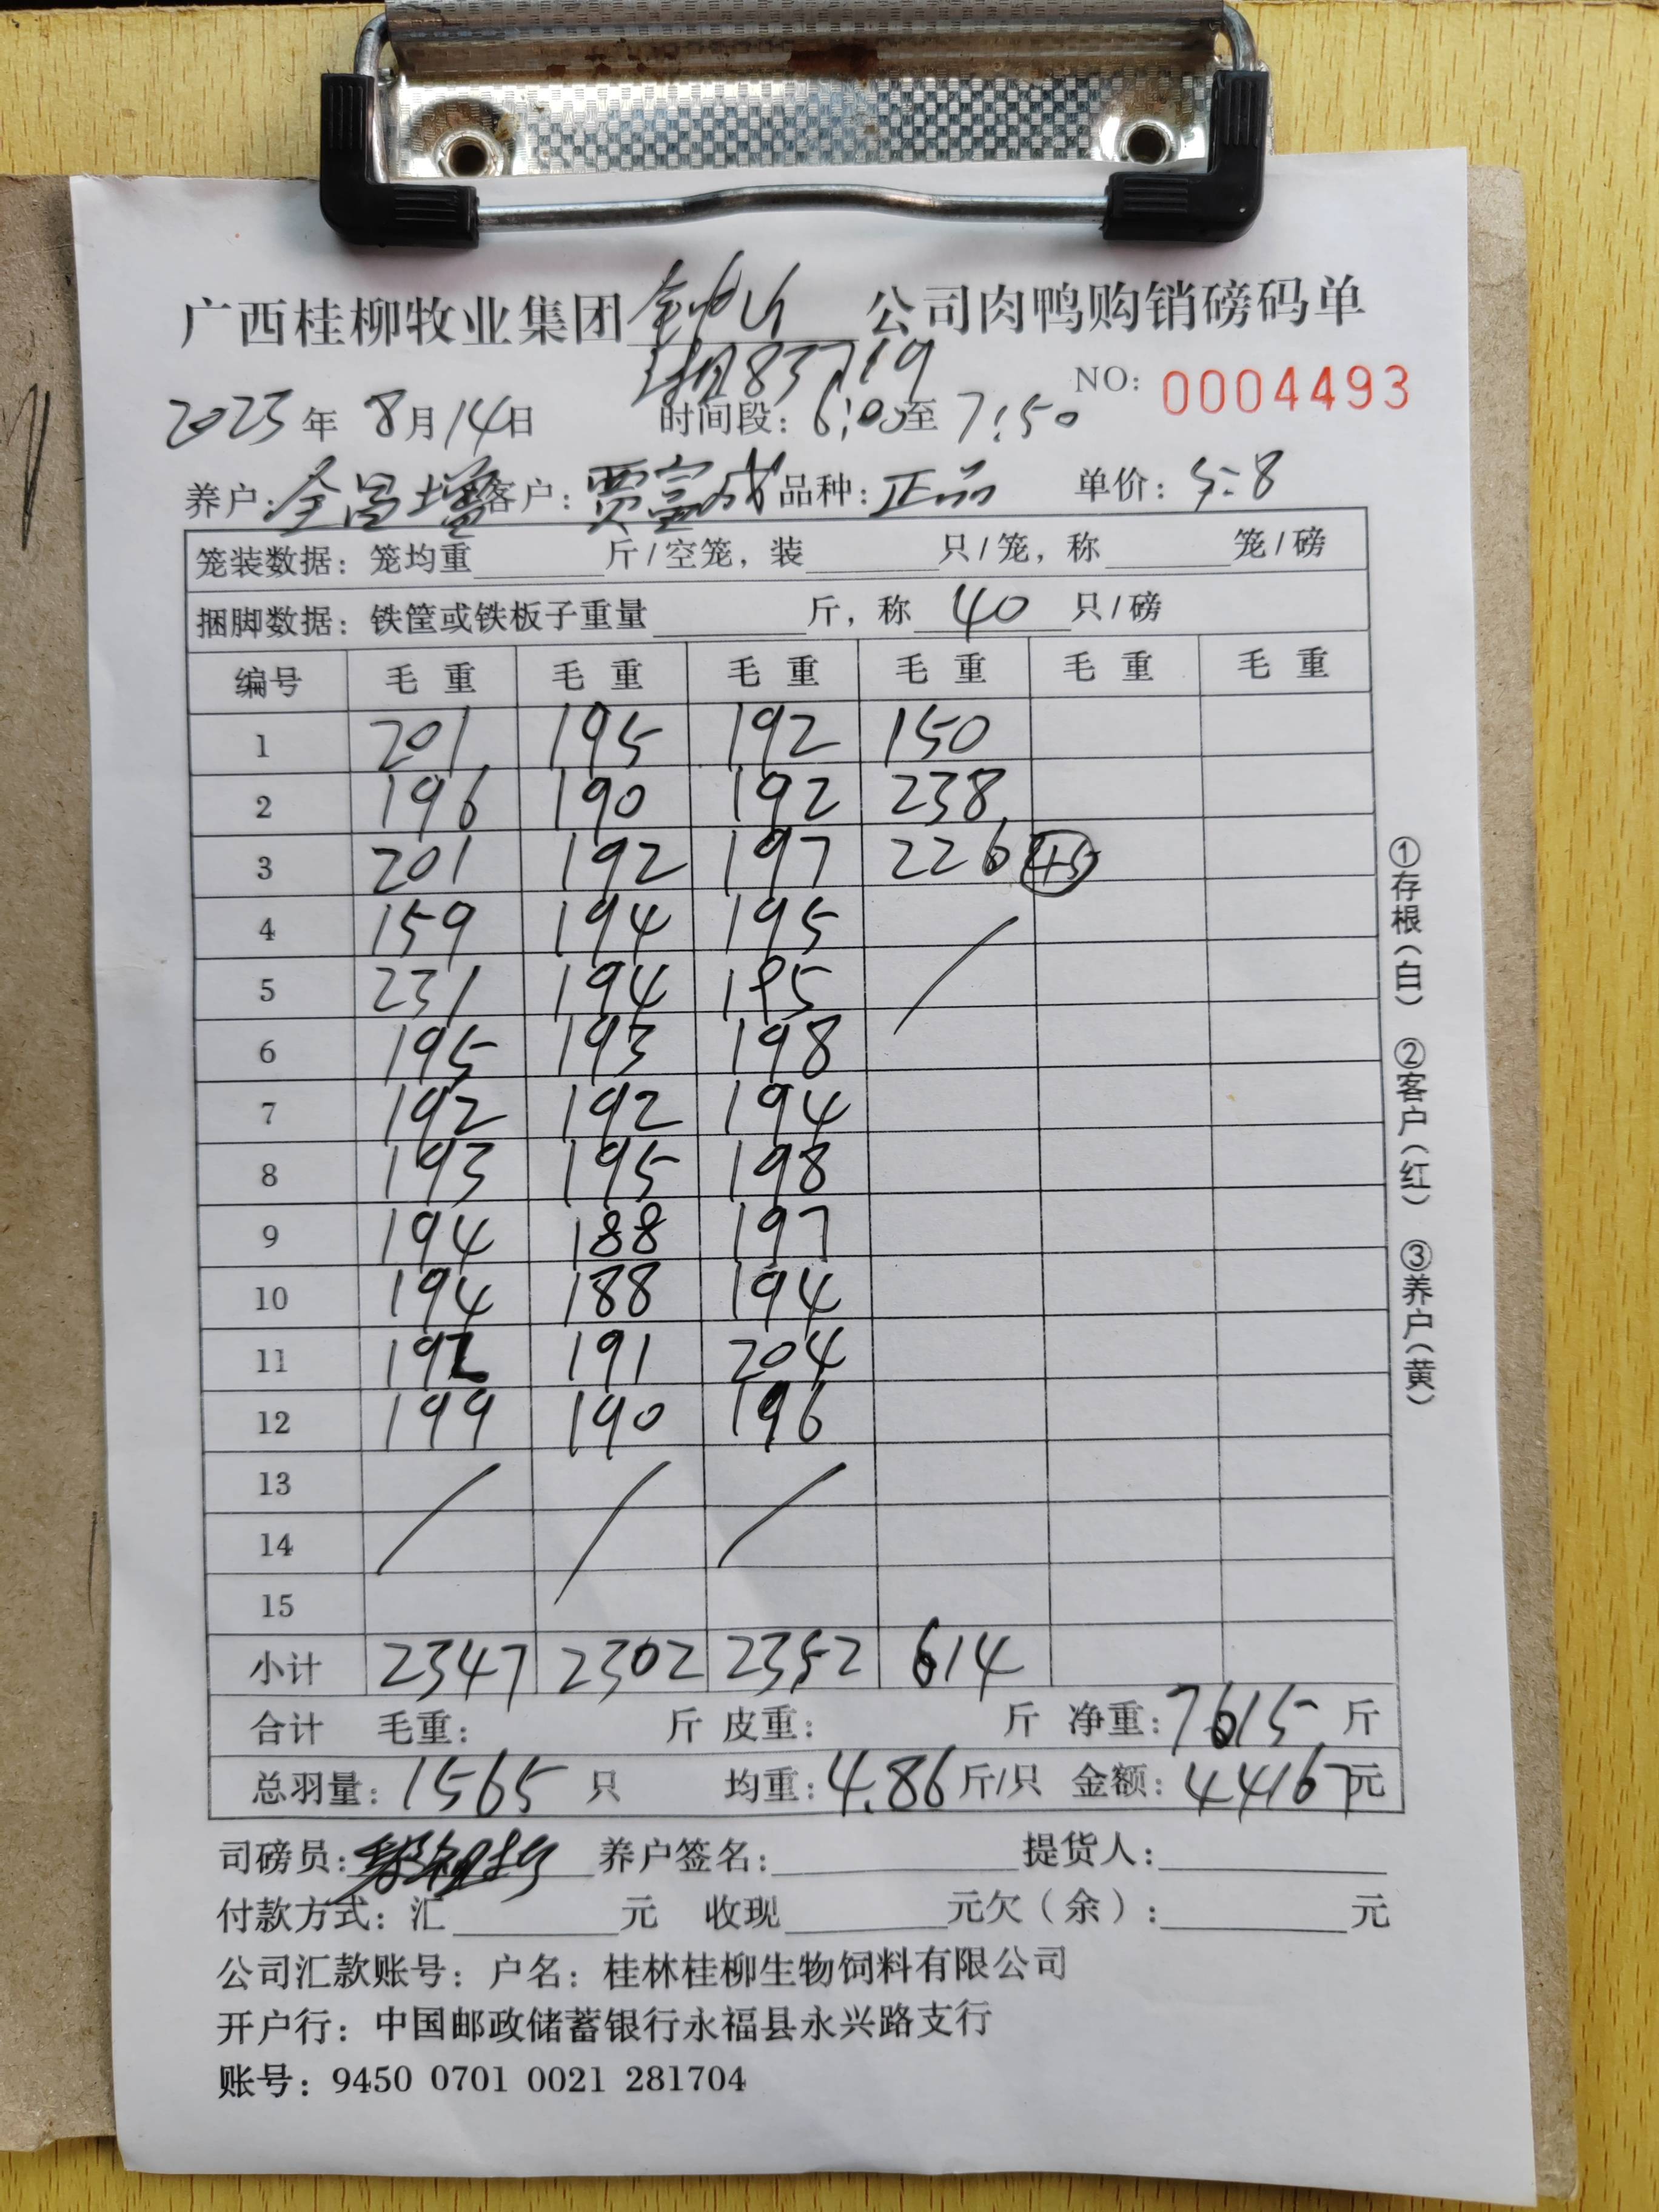 广西桂柳牧业集团 公司肉鸭购销磅码单
83719
NO: 0004493
2023年 8月14日 时间段: 6:00至 7:50
养户: 全昌增 客户: 贾富成 品种: 正品 单价: 5.8
笼装数据: 笼均重 斤/空笼, 装 只/笼, 称 笼/磅
捆脚数据: 铁筐或铁板子重量 斤, 称 40 只/磅
编号 毛重 毛重 毛重 毛重 毛重 毛重
1 201 195 192 150
2 196 190 192 238
3 201 192 197 226 45
4 159 194 195
5 231 194 195
6 195 193 198
7 192 192 194
8 193 195 198
9 194 188 197
10 194 188 194
11 192 191 204
12 199 190 196
13
14
15
小计 2347 2302 2352 614
合计 毛重: 斤 皮重: 斤 净重: 7615 斤
总羽量: 1565 只 均重: 4.86 斤/只 金额: 44167元
司磅员: 养户签名: 提货人:
付款方式: 汇 元 收现 元欠(余): 元
公司汇款账号: 户名: 桂林桂柳生物饲料有限公司
开户行: 中国邮政储蓄银行永福县永兴路支行
账号: 9450 0701 0021 281704
①存根(白) ②客户(红) ③养户(黄)